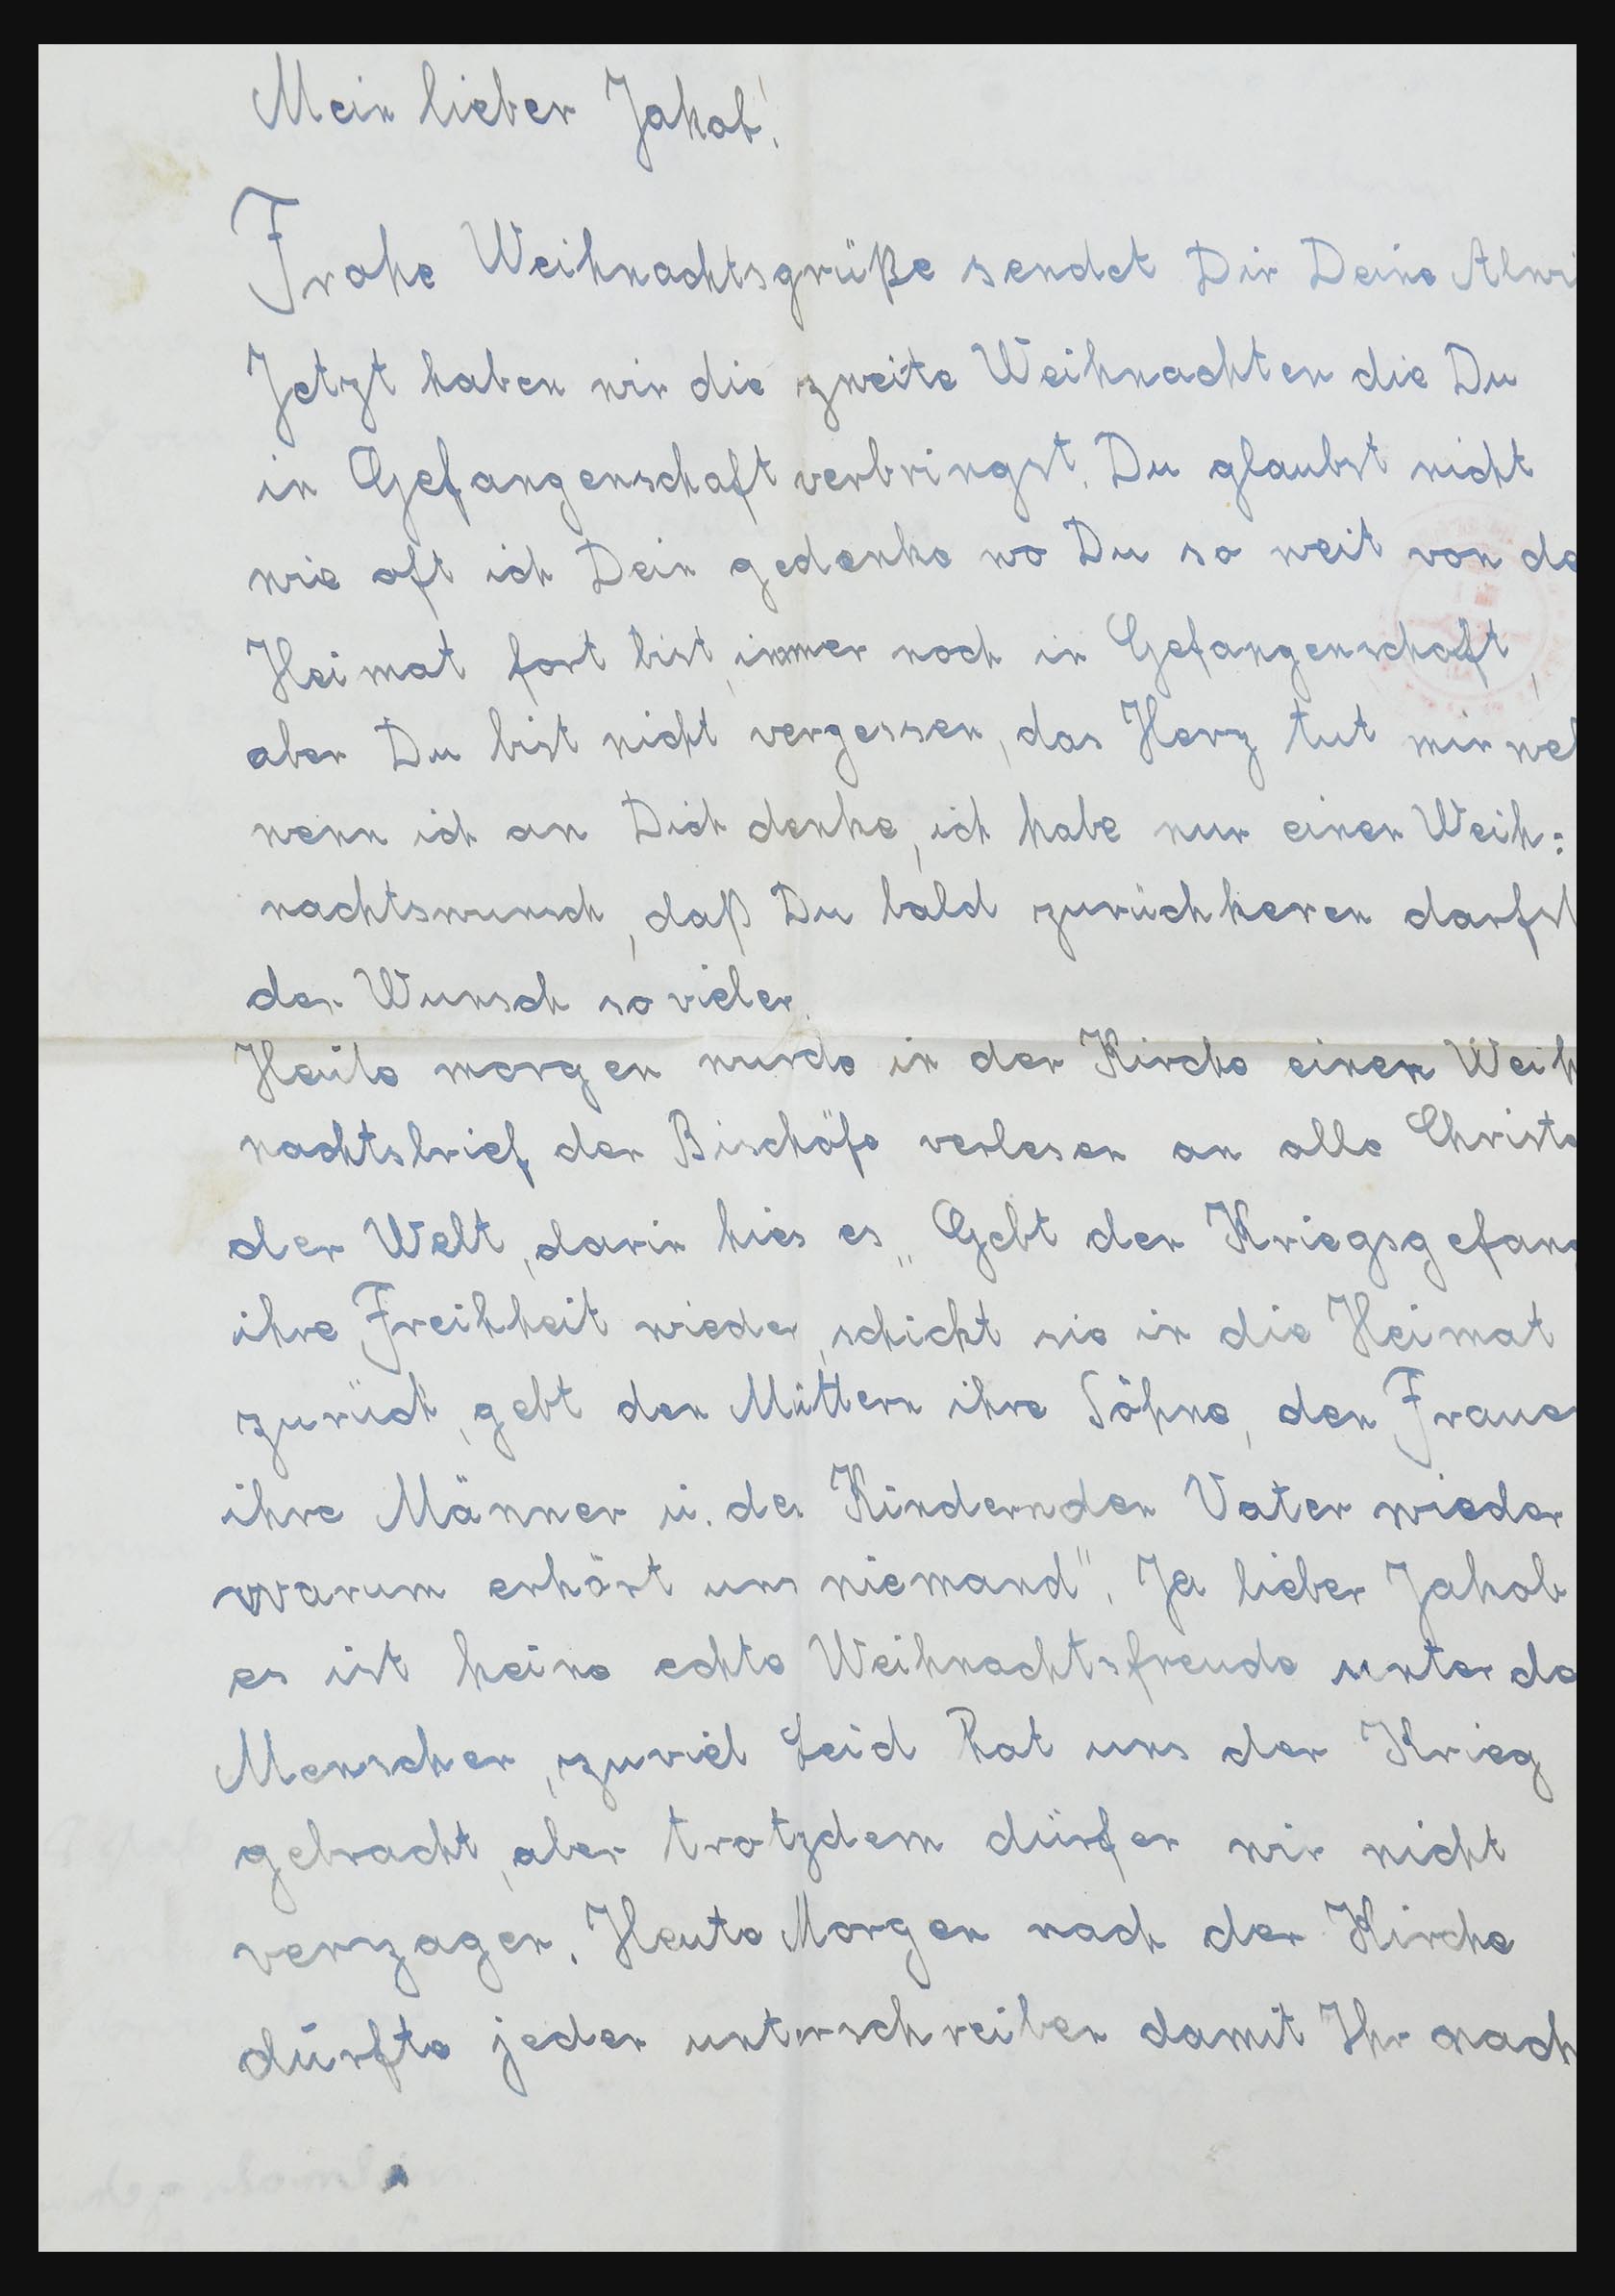 Mein lieber Jakob!
Frohe Weihnachtsgrüße sendet Dir Deine Alwi
Jetzt haben wir die zweite Weihnachten die Du
in Gefangenschaft verbringst. Du glaubst nicht
wie oft ich Dein gedenke wo Du so weit von de
Heimat fort bist, immer noch in Gefangenschaft,
aber Du bist nicht vergessen, das Herz tut mir weh
wenn ich an Dich denke, ich habe nur einen Weih:
nachtswunsch, daß Du bald zurückkeren darfst
der Wunsch so vieler.
Heute morgen wurde in der Kirche einen Weih
nachtsbrief der Bischöfe verlesen an alle Christe
der Welt, darin hies es „Gebt den Kriegsgefang
ihre Freihheit wieder, schickt sie in die Heimat
zurück, gebt den Müttern ihre Söhne, den Frauen
ihre Männer u. den Kindern den Vater wieder
warum erhört uns niemand". Ja lieber Jakob
es ist keine echte Weihnachtsfreude unter de
Menschen, zuviel Leid hat uns der Krieg
gebracht, aber trotzdem dürfen wir nicht
verzagen. Heute Morgen nach der Kirche
dürfte jeder unterschreiben damit Ihr nach